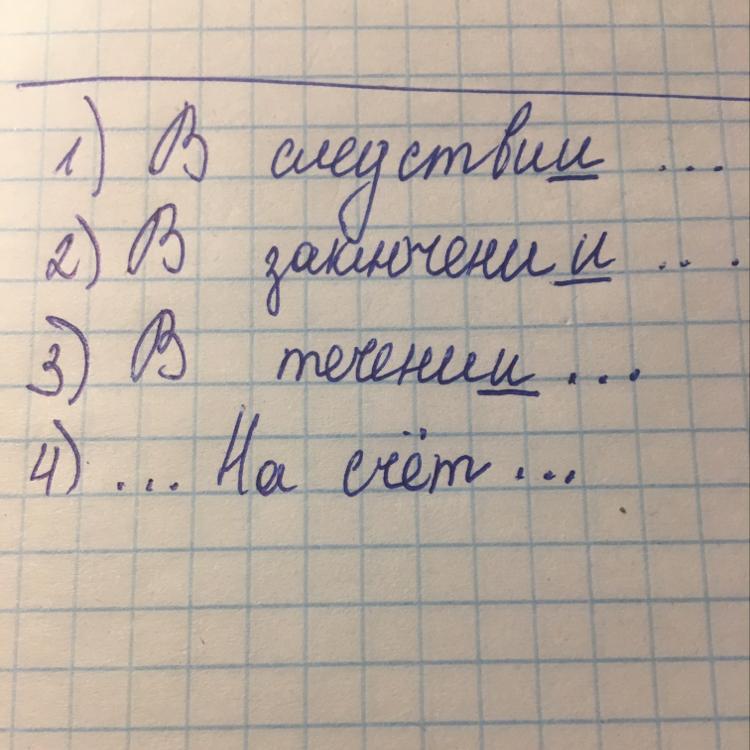 1) В следствии ...
2) В заключении ...
3) В течении ...
4) ... На счёт ...